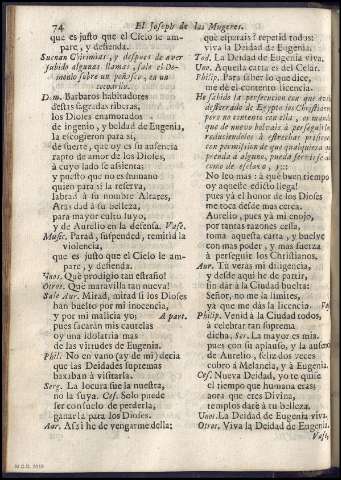 74 El Joseph de las Mugeres.
que es justo que el Cielo le am-
pare, y defienda.
Suenan Chirimias, y despues de aver
subido algunas llamas, sale el De-
monio sobre un peñasco, en un
Dem. Barbaros habitadores
destas sagradas riberas,
los Dioses enamorados
de ingenio, y beldad de Eugenia,
la escogieron para si,
de suerte, que oy es su ausencia
rapto de amor de los Dioses,
à cuyo lado se assienta:
y puesto que no es humano
quien para si la reserva,
labrad à su nombre Altares,
Aras dad à su belleza,
para mayor culto suyo,
y de Aurelio en la defensa. Vase.
Music. Parad, suspended, remitid la
violencia,
que es justo que el Cielo le am-
pare, y defienda.
Unos. Què prodigio tan estraño!
Otros. Què maravilla tan nueva!
Sale Aur. Mirad, mirad si los Dioses
han buelto por mi inocencia,
y por mi malicia yo; A part.
pues sacaràn mis cautelas
oy una idolatria mas
de las virtudes de Eugenia.
Phil. No en vano (ay de mi) decia
que las Deidades supremas
baxaban à visitarla.
Serg. La locura fue la nuestra,
no la suya. Ces. Solo puede
ser consuelo de perderla,
ganarla para los Dioses.
Aur. Assi he de vengarme della:
que esperais? repetid todos:
viva la Deidad de Eugenia.
Tod. La Deidad de Eugenia viva.
Uno. Aquesta carta es del Cesar.
Philip. Para saber lo que dice,
me dè el contento licencia.
He sabido la persecucion con que aveis
desterrado de Egypto los Christianos;
pero no contento con ella, os mando
que de nuevo bolvais à perseguirlos,
reduciendolos à estrechas prisiones,
con permission de que qualquiera que
prenda à alguno, pueda servirse de èl
como de esclavo, &c.
No leo mas: à què buen tiempo
oy aqueste edicto llega!
pues yà el honor de los Dioses
me toca desde mas cerca.
Aurelio, pues yà mi enojo,
por tantas razones cessa,
toma aquesta carta, y buelve
con mas poder, y mas fuerza
à perseguir los Christianos.
Aur. Tù veràs mi diligencia,
y desde aqui he de partir,
sin dar à la Ciudad buelta:
Señor, no me la limites,
ya que me das la licencia. Vase
Philip. Venid à la Ciudad todos,
à celebrar tan suprema
dicha. Ser. La mayor es mia,
pues con su aplauso, y la ausencia
de Aurelio, feliz dos veces
cobro à Melancia, y à Eugenia.
Ces. Nueva Deidad, yo te quise
el tiempo que humana eras;
aora que eres Divina,
templos darè à tu belleza.
Unos. La Deidad de Eugenia viva.
Otros. Viva la Deidad de Eugenia.
Vase,
M.C.D. 2018